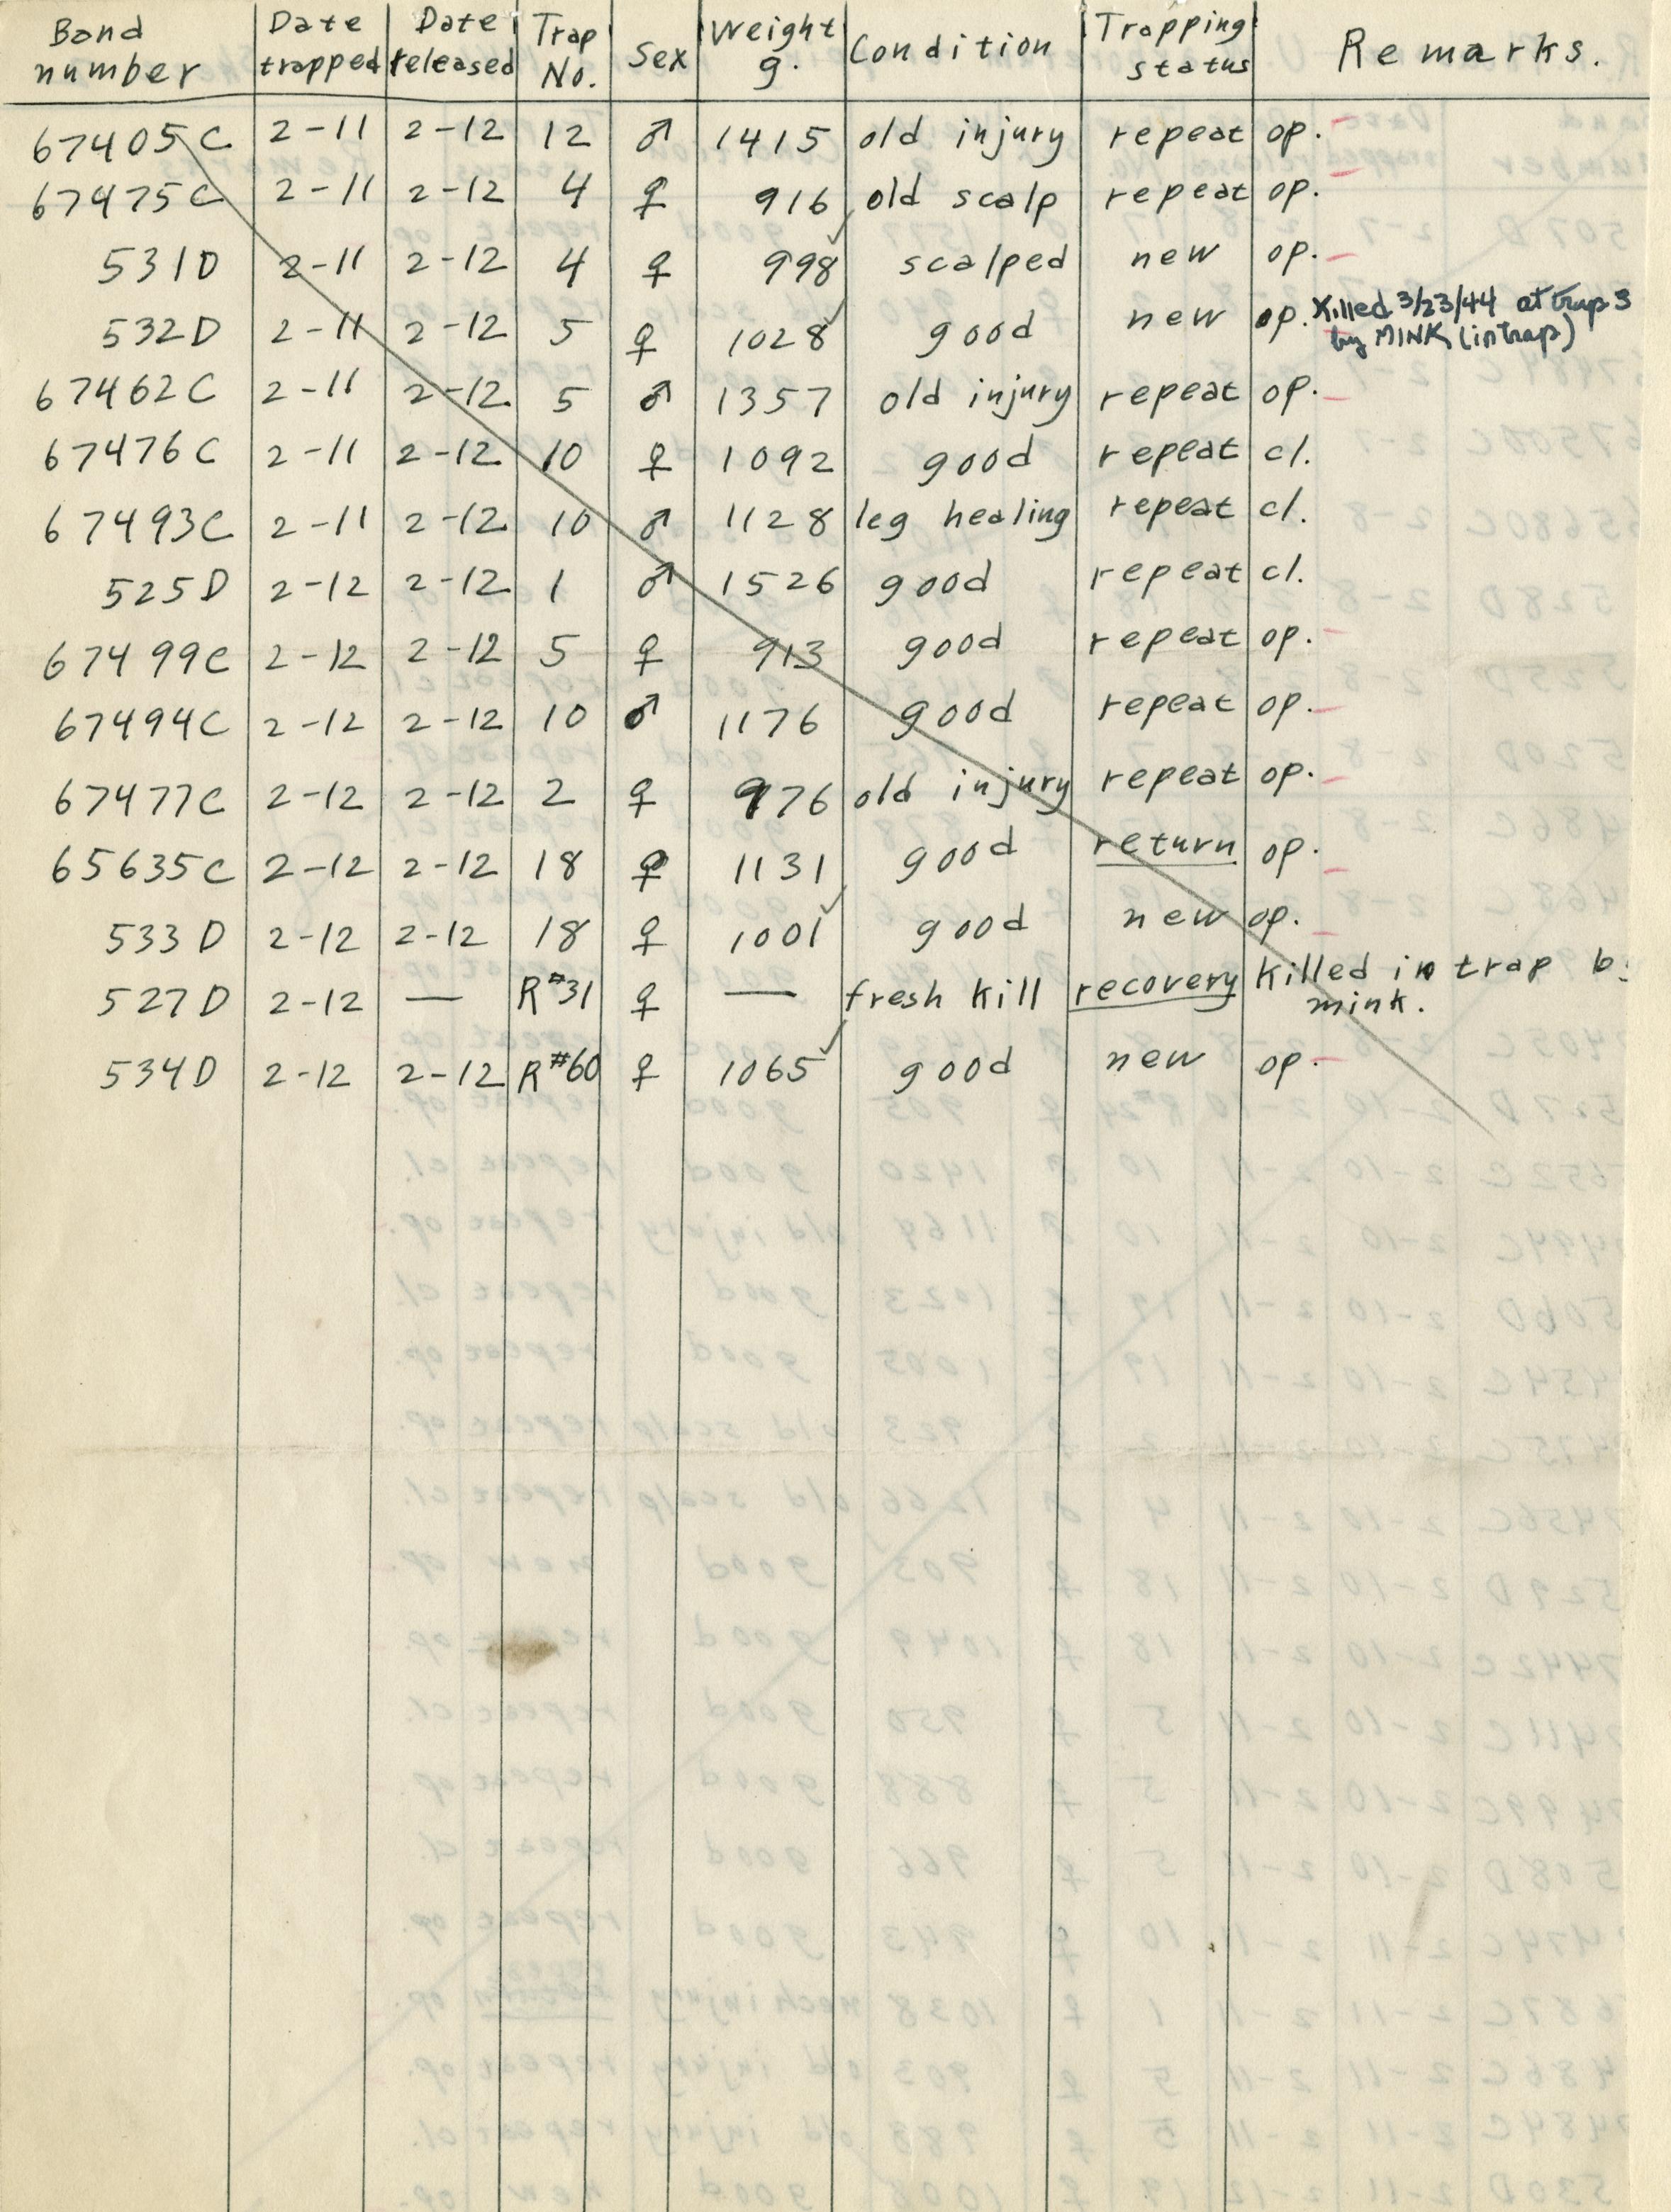 Band number | Date trapped | Date released | Trap No. | Sex | Weight g. | Condition | Trapping status | Remarks.
67405C 2-11 2-12 12 ♂ 1415 old injury repeat op.
67475C 2-11 2-12 4 ♀ 916 old scalp repeat op.
531D 2-11 2-12 4 ♀ 998✓ scalped new op.
532D 2-11 2-12 5 ♀ 1028✓ good new op. Killed 3/23/44 at trap 3
by MINK (in trap)
67462C 2-11 2-12 5 ♂ 1357 old injury repeat op.
67476C 2-11 2-12 10 ♀ 1092 good repeat cl.
67493C 2-11 2-12 10 ♂ 1128 leg healing repeat cl.
525D 2-12 2-12 1 ♂ 1526 good repeat cl.
67499C 2-12 2-12 5 ♀ 913 good repeat op.
67494C 2-12 2-12 10 ♂ 1176 good repeat op.
67477C 2-12 2-12 2 ♀ 976 old injury repeat op.
65635C 2-12 2-12 18 ♀ 1131 good return op.
533D 2-12 2-12 18 ♀ 1001✓ good new op.
527D 2-12 — R#31 ♀ — fresh kill recovery Killed in trap b
mink.
534D 2-12 2-12 R#60 ♀ 1065✓ good new op